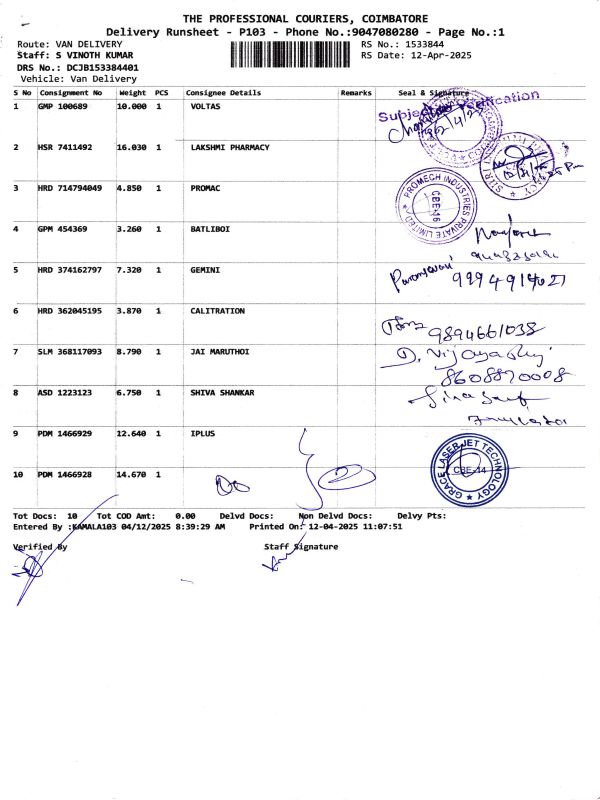 THE PROFESSIONAL COURIERS, COIMBATORE
Delivery Runsheet - P103 - Phone No.:9047080280 - Page No.:1
Route: VAN DELIVERY RS No.: 1533844
Staff: S VINOTH KUMAR RS Date: 12-Apr-2025
DRS No.: DCJB153384401
Vehicle: Van Delivery
S No Consignment No Weight PCS Consignee Details Remarks Seal & Signature
Subject to Verification
1 GMP 100689 10.000 1 VOLTAS
2 HSR 7411492 16.030 1 LAKSHMI PHARMACY
3 HRD 714794049 4.850 1 PROMAC
PROMECH INDUSTRIES PRIVATE LIMITED
CBE-16
4 GPM 454369 3.260 1 BATLIBOI
5 HRD 374162797 7.320 1 GEMINI
6 HRD 362045195 3.870 1 CALITRATION
9894661038
7 SLM 368117093 8.790 1 JAI MARUTHOI
8608870008
8 ASD 1223123 6.750 1 SHIVA SHANKAR
9 PDM 1466929 12.640 1 IPLUS
GRACE LASER JET TECHNOLOGY
CBE-14
10 PDM 1466928 14.670 1
Tot Docs: 10 Tot COD Amt: 0.00 Delvd Docs: Non Delvd Docs: Delvy Pts:
Entered By :KAMALA103 04/12/2025 8:39:29 AM Printed On: 12-04-2025 11:07:51
Verified By Staff Signature